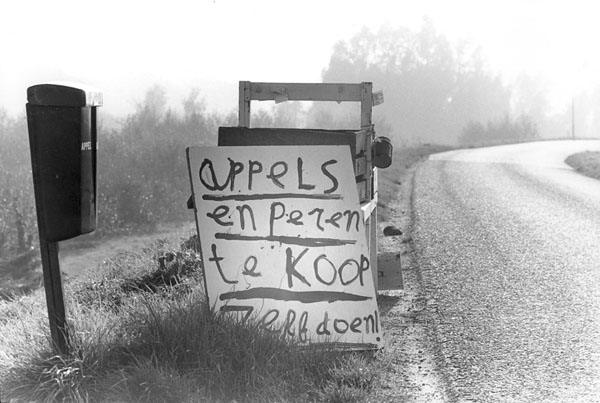 APPEL
appels
en peren
te KOOP
Zelf doen!